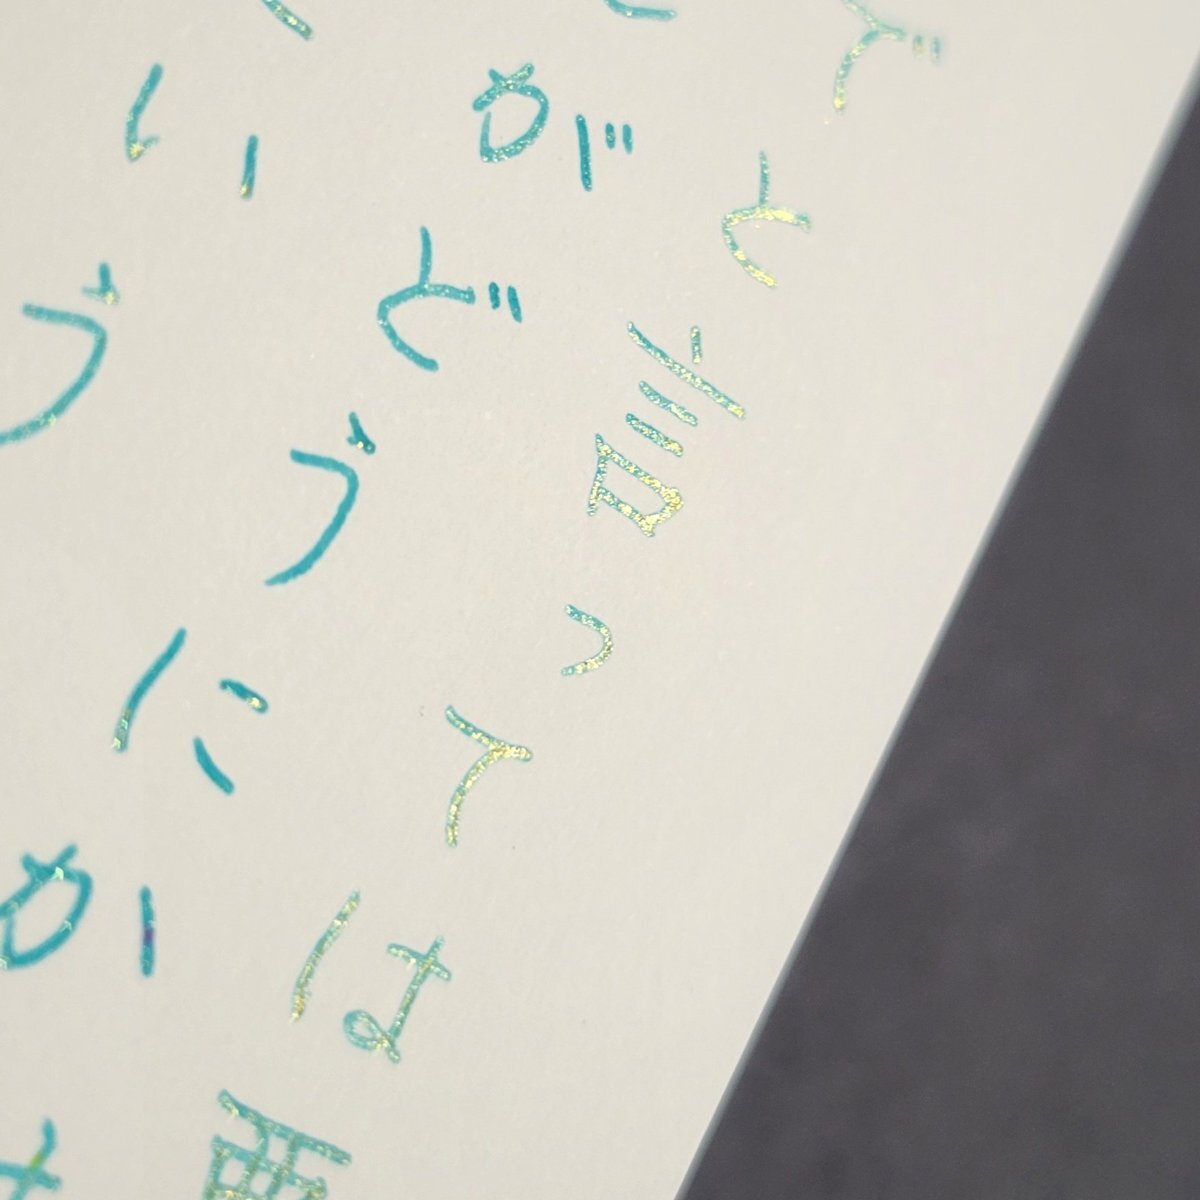 でと言っては
がどうにか
いう